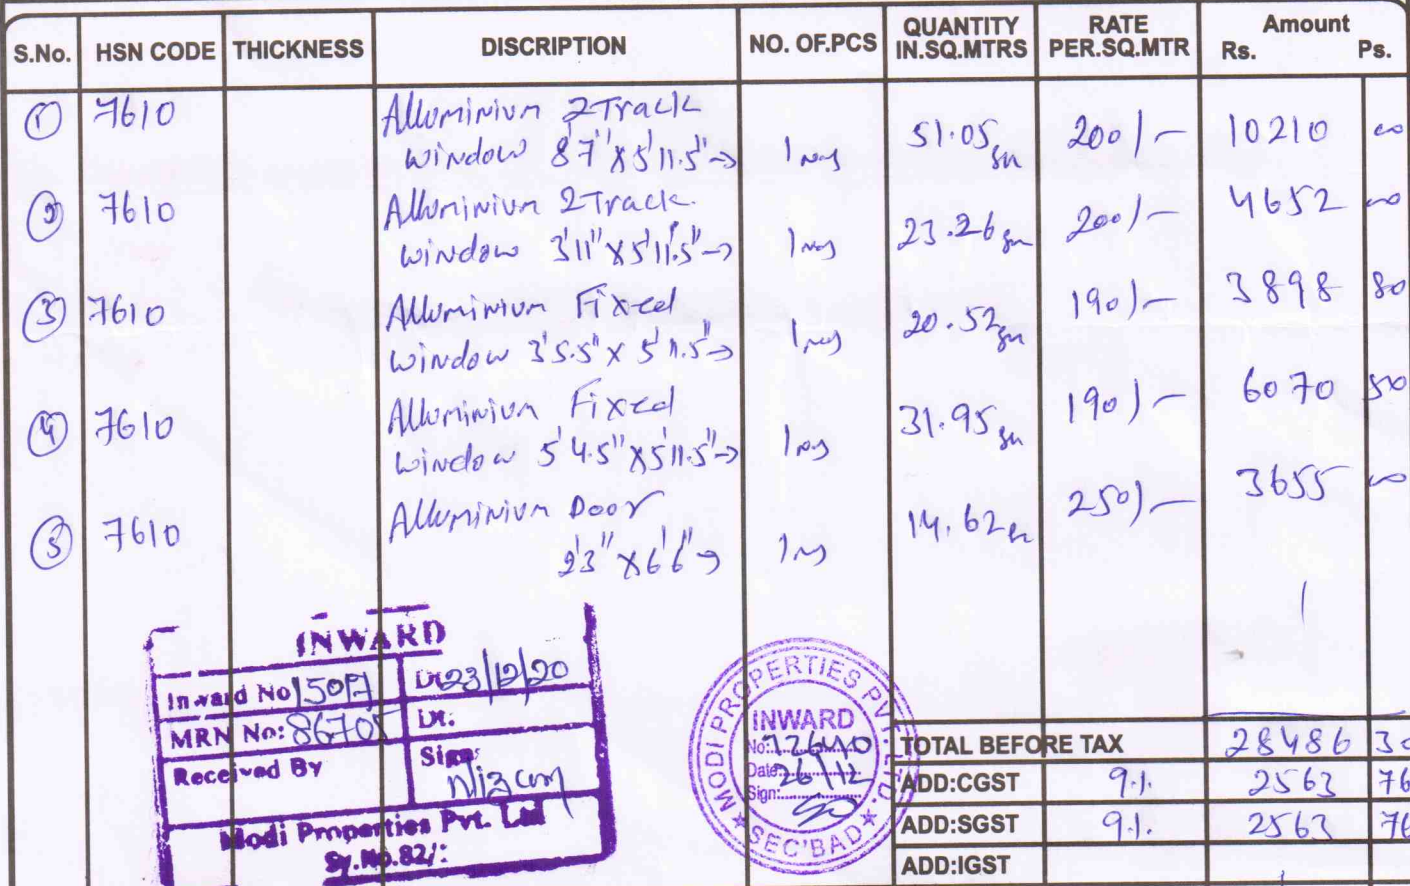 S.No. HSN CODE THICKNESS DISCRIPTION NO. OF.PCS QUANTITY IN.SQ.MTRS RATE PER.SQ.MTR Amount Rs. Ps.
1 7610 Alluminium 2 Track
window 8'7" X 5'11.5" → 1 nos 51.05 200/- 10210 00
2 7610 Alluminium 2 Track
window 3'11" X 5'11.5" → 1 nos 23.26 200/- 4652 00
3 7610 Alluminium Fixed
window 3'5.5" X 5'11.5" → 1 nos 20.52 190/- 3898 80
4 7610 Alluminium Fixed
window 5'4.5" X 5'11.5" → 1 nos 31.95 190/- 6070 50
5 7610 Alluminium Door
2'3" X 6'6" → 1 nos 14.62 250/- 3655 00
INWARD
Inward No Dt: 23/12/20
MRN No: 86705 Dt:
Received By Sign: Nizam
Modi Properties Pvt. Ltd
Sy.No.82/:
MODI PROPERTIES PVT. LTD. ★ SEC'BAD ★
INWARD
No:
Date: 26/12
Sign:
TOTAL BEFORE TAX 28486 30
ADD:CGST 9% 2563 76
ADD:SGST 9% 2563 76
ADD:IGST